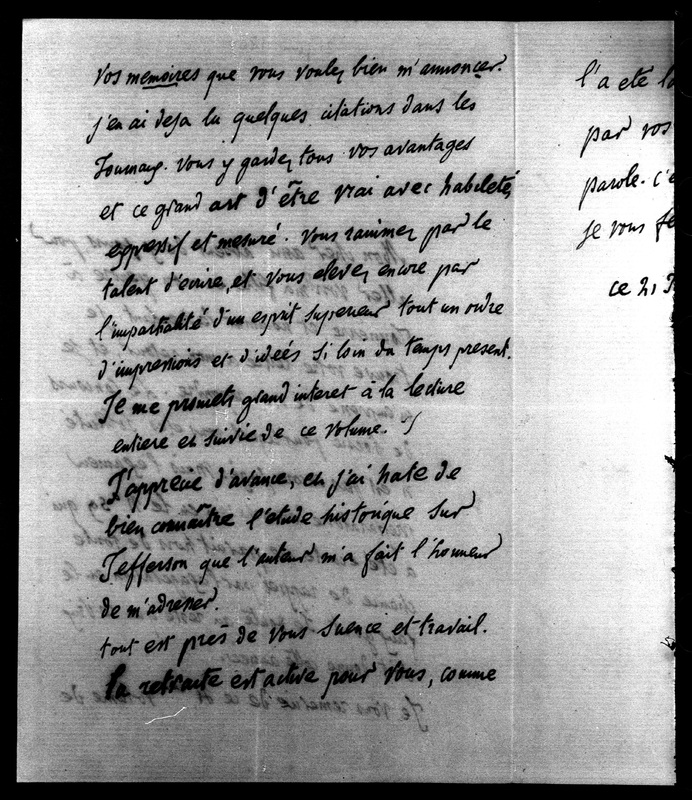 vos memoires que vous voulez bien m'annoncer.
j'en ai deja lu quelques citations dans les
Journaux. vous y gardez tous vos avantages
et ce grand art d'être vrai avec habileté,
expressif et mesuré. vous ranimez par le
talent d'ecrire, et vous elevez encore par
l'impartialité d'un esprit superieur tout un ordre
d'impressions et d'ideés si loin du temps present.
Je me promets grand interet à la lecture
entiere et suivie de ce volume.
J'approuve d'avance, et j'ai hate de
bien connaître l'etude historique sur
Jefferson que l'auteur m'a fait l'honneur
de m'adresser.
tout est près de vous science et travail.
la retraite est active pour vous, comme
l'a eté la
par vos
parole. c'e
je vous
ce 21 J